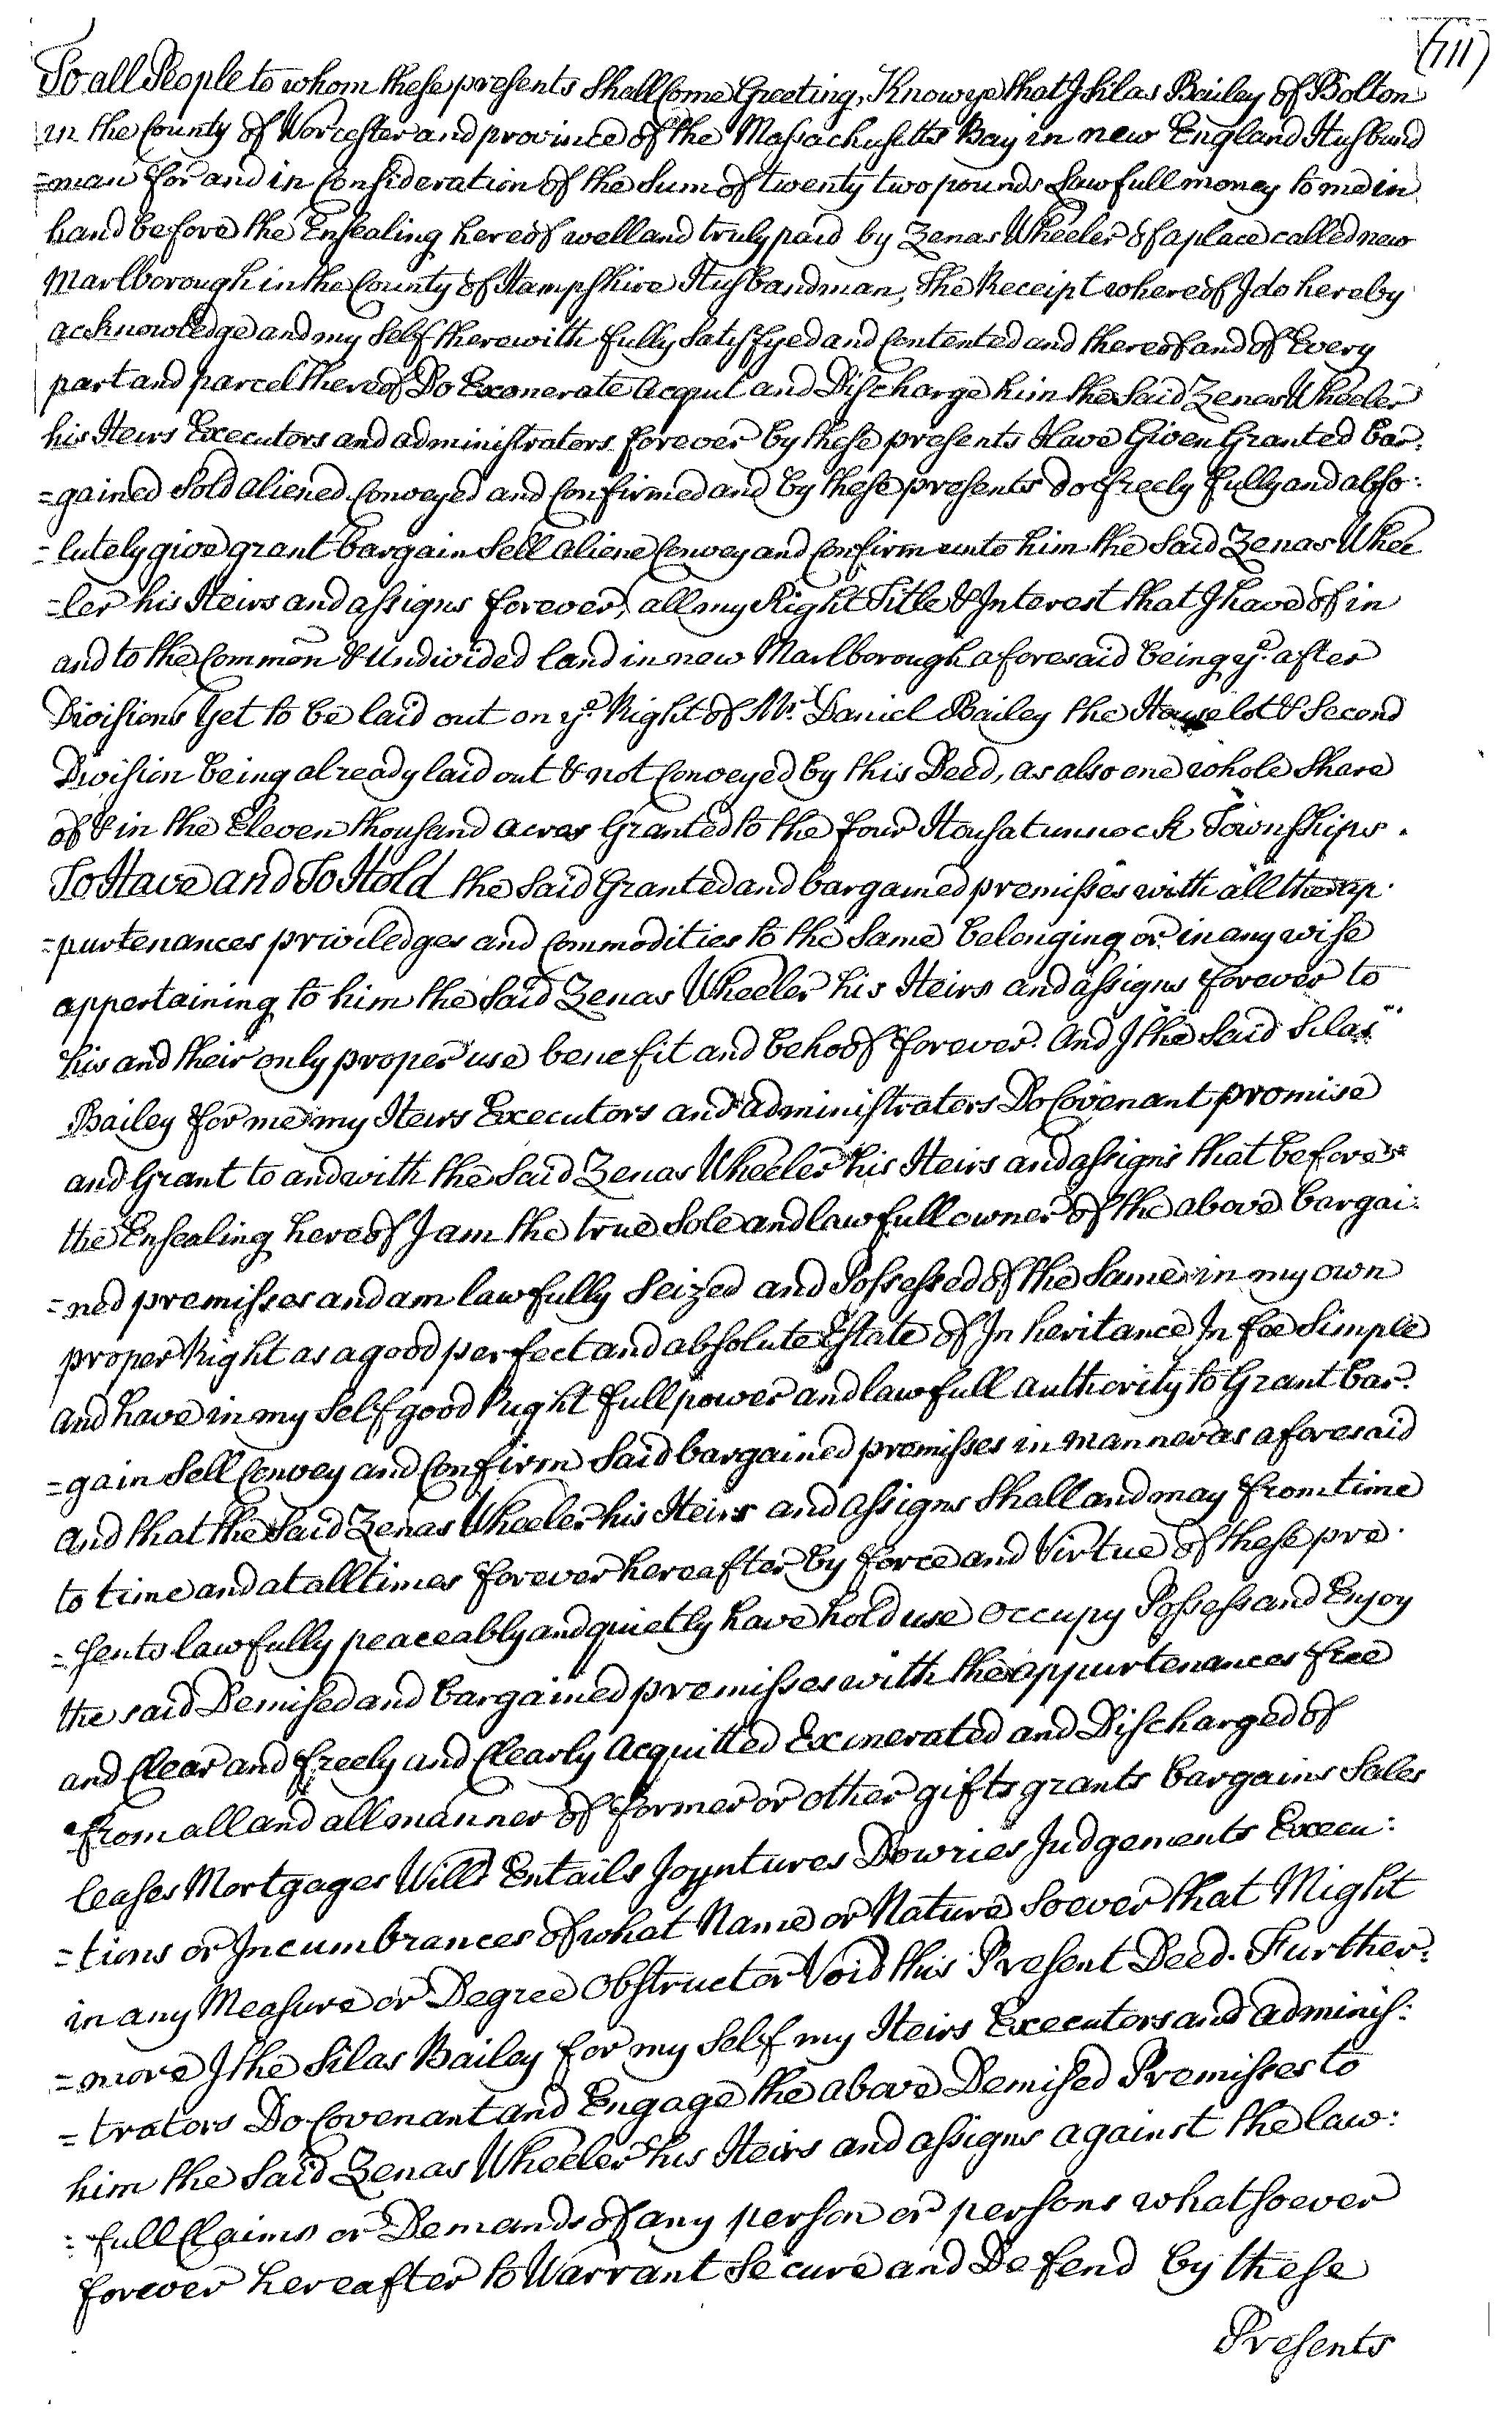 (711)
To all People to whom these presents shall Come Greeting, Know ye that I Silas Bailey of Bolton
in the County of Worcester and province of the Massachusetts Bay in new England Husband
=man for and in Consideration of the Sum of twenty two pounds Lawfull money to me in
hand before the Ensealing hereof well and truly paid by Zenas Wheeler of a place called new
Marlborough in the County of Hampshire Husbandman, The Receipt whereof I do hereby
acknowledge and my Self therewith fully Satisfyed and Contented and thereof and of Every
part and parcel thereof Do Exonerate Acquit and Discharge him the Said Zenas Wheeler
his Heirs Executors and administrators forever by these presents Have Given Granted bar:
=gained Sold aliened Conveyed and Confirmed and by these presents do freely fully and abso:
=lutely give grant bargain Sell aliene Convey and Confirm unto him the Said Zenas Whee
=ler his Heirs and assigns forever, all my Right Title & Interest that I have of in
and to the Common & Undivided land in new Marlborough aforesaid being ye after
Divisions Yet to be laid out on ye Right of Mr. Daniel Bailey the House lot & Second
Division being already laid out & not Conveyed by this Deed, as also one whole Share
of & in the Eleven thousand acres Granted to the four Housatunnock Townships.
To Have and To Hold the Said Granted and bargained premisses with all the ap:
=purtenances priviledges and Commodities to the Same belonging or in any wise
appertaining to him the Said Zenas Wheeler his Heirs and assigns forever to
his and their only proper use benefit and behoof forever. And I the Said Silas
Bailey for me my Heirs Executors and administrators Do Covenant promise
and Grant to and with the Said Zenas Wheeler his Heirs and assigns that before
the Ensealing hereof I am the true Sole and lawfull owner of the above bargai:
=ned premisses and am lawfully Seized and Possessed of the Same in my own
proper Right as a good perfect and absolute Estate of Inheritance In fee Simple
and have in my Self good Right full power and lawfull authority to Grant bar:
=gain Sell Convey and Confirm Said bargained premisses in manner as aforesaid
and that the Said Zenas Wheeler his Heirs and assigns Shall and may from time
to time and at all times forever hereafter by force and Virtue of these pre:
=sents lawfully peaceably and quietly have hold use occupy Possess and Enjoy
the said Demised and bargained premisses with the appurtenances free
and Clear and freely and Clearly Acquitted Exonerated and Discharged of
from all and all manner of former or other gifts grants bargains Sales
leases Mortgages Wills Entails Joyntures Dowries Judgements Execu:
=tions or Incumbrances of what Name or Nature Soever that Might
in any Measure or Degree obstruct or Void this Present Deed. Further:
=more I the Silas Bailey for my Self my Heirs Executors and adminis:
=trators Do Covenant and Engage the above Demised Premisses to
him the Said Zenas Wheeler his Heirs and assigns against the law:
=full Claims or Demands of any person or persons whatsoever
forever hereafter to Warrant Secure and Defend by these
Presents